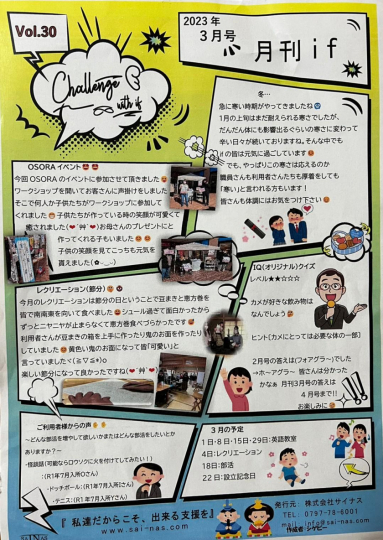 Vol.30
2023年
3月号
月刊if
Challenge
with if
冬…
急に寒い時期がやってきましたね
1月の上旬はまだ耐えられる寒さでしたが、
だんだん体にも影響出るぐらいの寒さに変わって
辛い日々が続いております。そんな中でも
ifの皆は元気に過ごしています
でも、やっぱりこの寒さは応えるのか
職員さんも利用者さんたちも厚着をしても
「寒い」と言われる方もいます!
皆さんも体調にはお気をつけ下さい
OSORAイベント
今回OSORAのイベントに参加させて頂きました
ワークショップを開いてお客さんに声掛けをしました
そこで何人か子供たちがワークショップに参加して
くれました 子供たちが作っている時の笑顔が可愛くて
癒されました(❤️´艸`❤️)お母さんのプレゼントにと
作ってくれる子もいました
子供の笑顔を見てこっちも元気を
貰えました(✿◡‿◡)
レクリエーション(節分)
今月のレクリエーションは節分の日ということで豆まきと恵方巻を
皆で南南東を向いて食べました シュール過ぎて面白かったから
ずっとニヤニヤが止まらなくて恵方巻食べづらかったです
利用者さんが豆まきの箱を上手に作ったり鬼のお面を作ったり
していました 黄色い鬼のお面になって皆「可愛い」と
言っていました(≧▽≦*)o
楽しい節分になって良かったですね(❤️´艸`❤️)
IQ(オリジナル)クイズ
レベル★★☆☆☆
カメが好きな飲み物は
なんでしょう
ヒント[カメにとっては必要な体の一部]
2月号の答えは(フォアグラー)でした
→ホーアグラー 皆さんは分かった
かなぁ 月刊3月号の答えは
4月号まで!!
お楽しみに
ご利用者様からの声
~どんな部活を増やして欲しいかまたはどんな部活をしたいとか
ありますか?~
・怪談話(可能ならロウソクに火を付けてしてみたい!)
:(R1年7月入所Oさん)
・ドッチボール:(R1年7月入所Yさん)
・テニス:(R1年7月入所Yさん)
3月の予定
1日・8日・15日・29日:英語教室
4日:レクリエーション
18日:部活
22日:設立記念日
SAINAS
『私達だからこそ、出来る支援を』
www.sai-nas.com
発行元 株式会社サイナス
TEL 0797-78-6001
mail info@sai-nas.com
作成者:シケピー